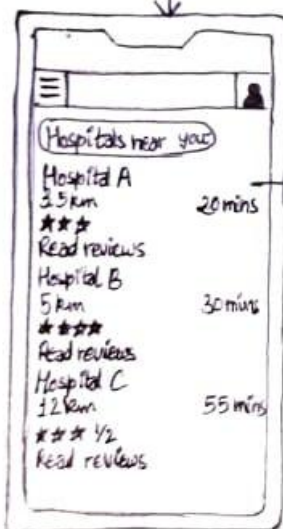 Hospitals near you
Hospital A
3.5 km 20 mins
★★★
Read reviews
Hospital B
5 km 30 mins
★★★★
Read reviews
Hospital C
12 km 55 mins
★★★ 1/2
Read reviews